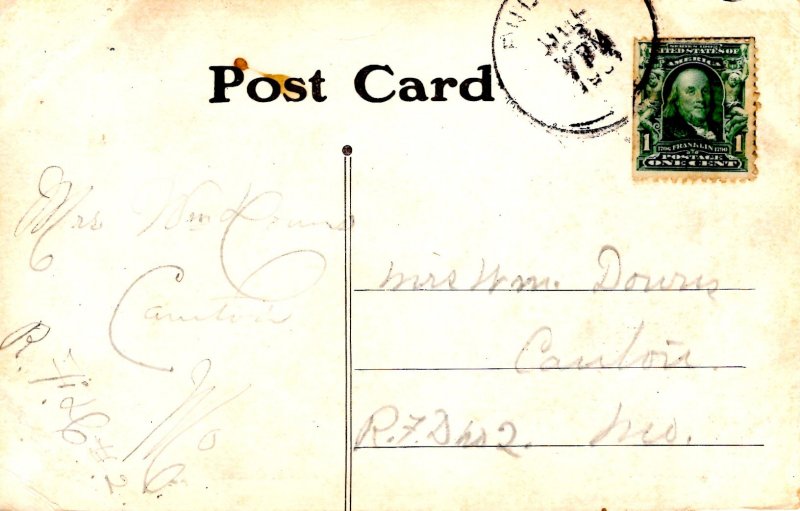 Post Card
SERIES 1902
UNITED STATES OF
AMERICA
1 1706 FRANKLIN 1790 1
POSTAGE
ONE CENT
Mrs Wm Downs
Canton
Mo
R.
Mrs Wm. Downs
Canton.
R.F.D no 2. Mo.